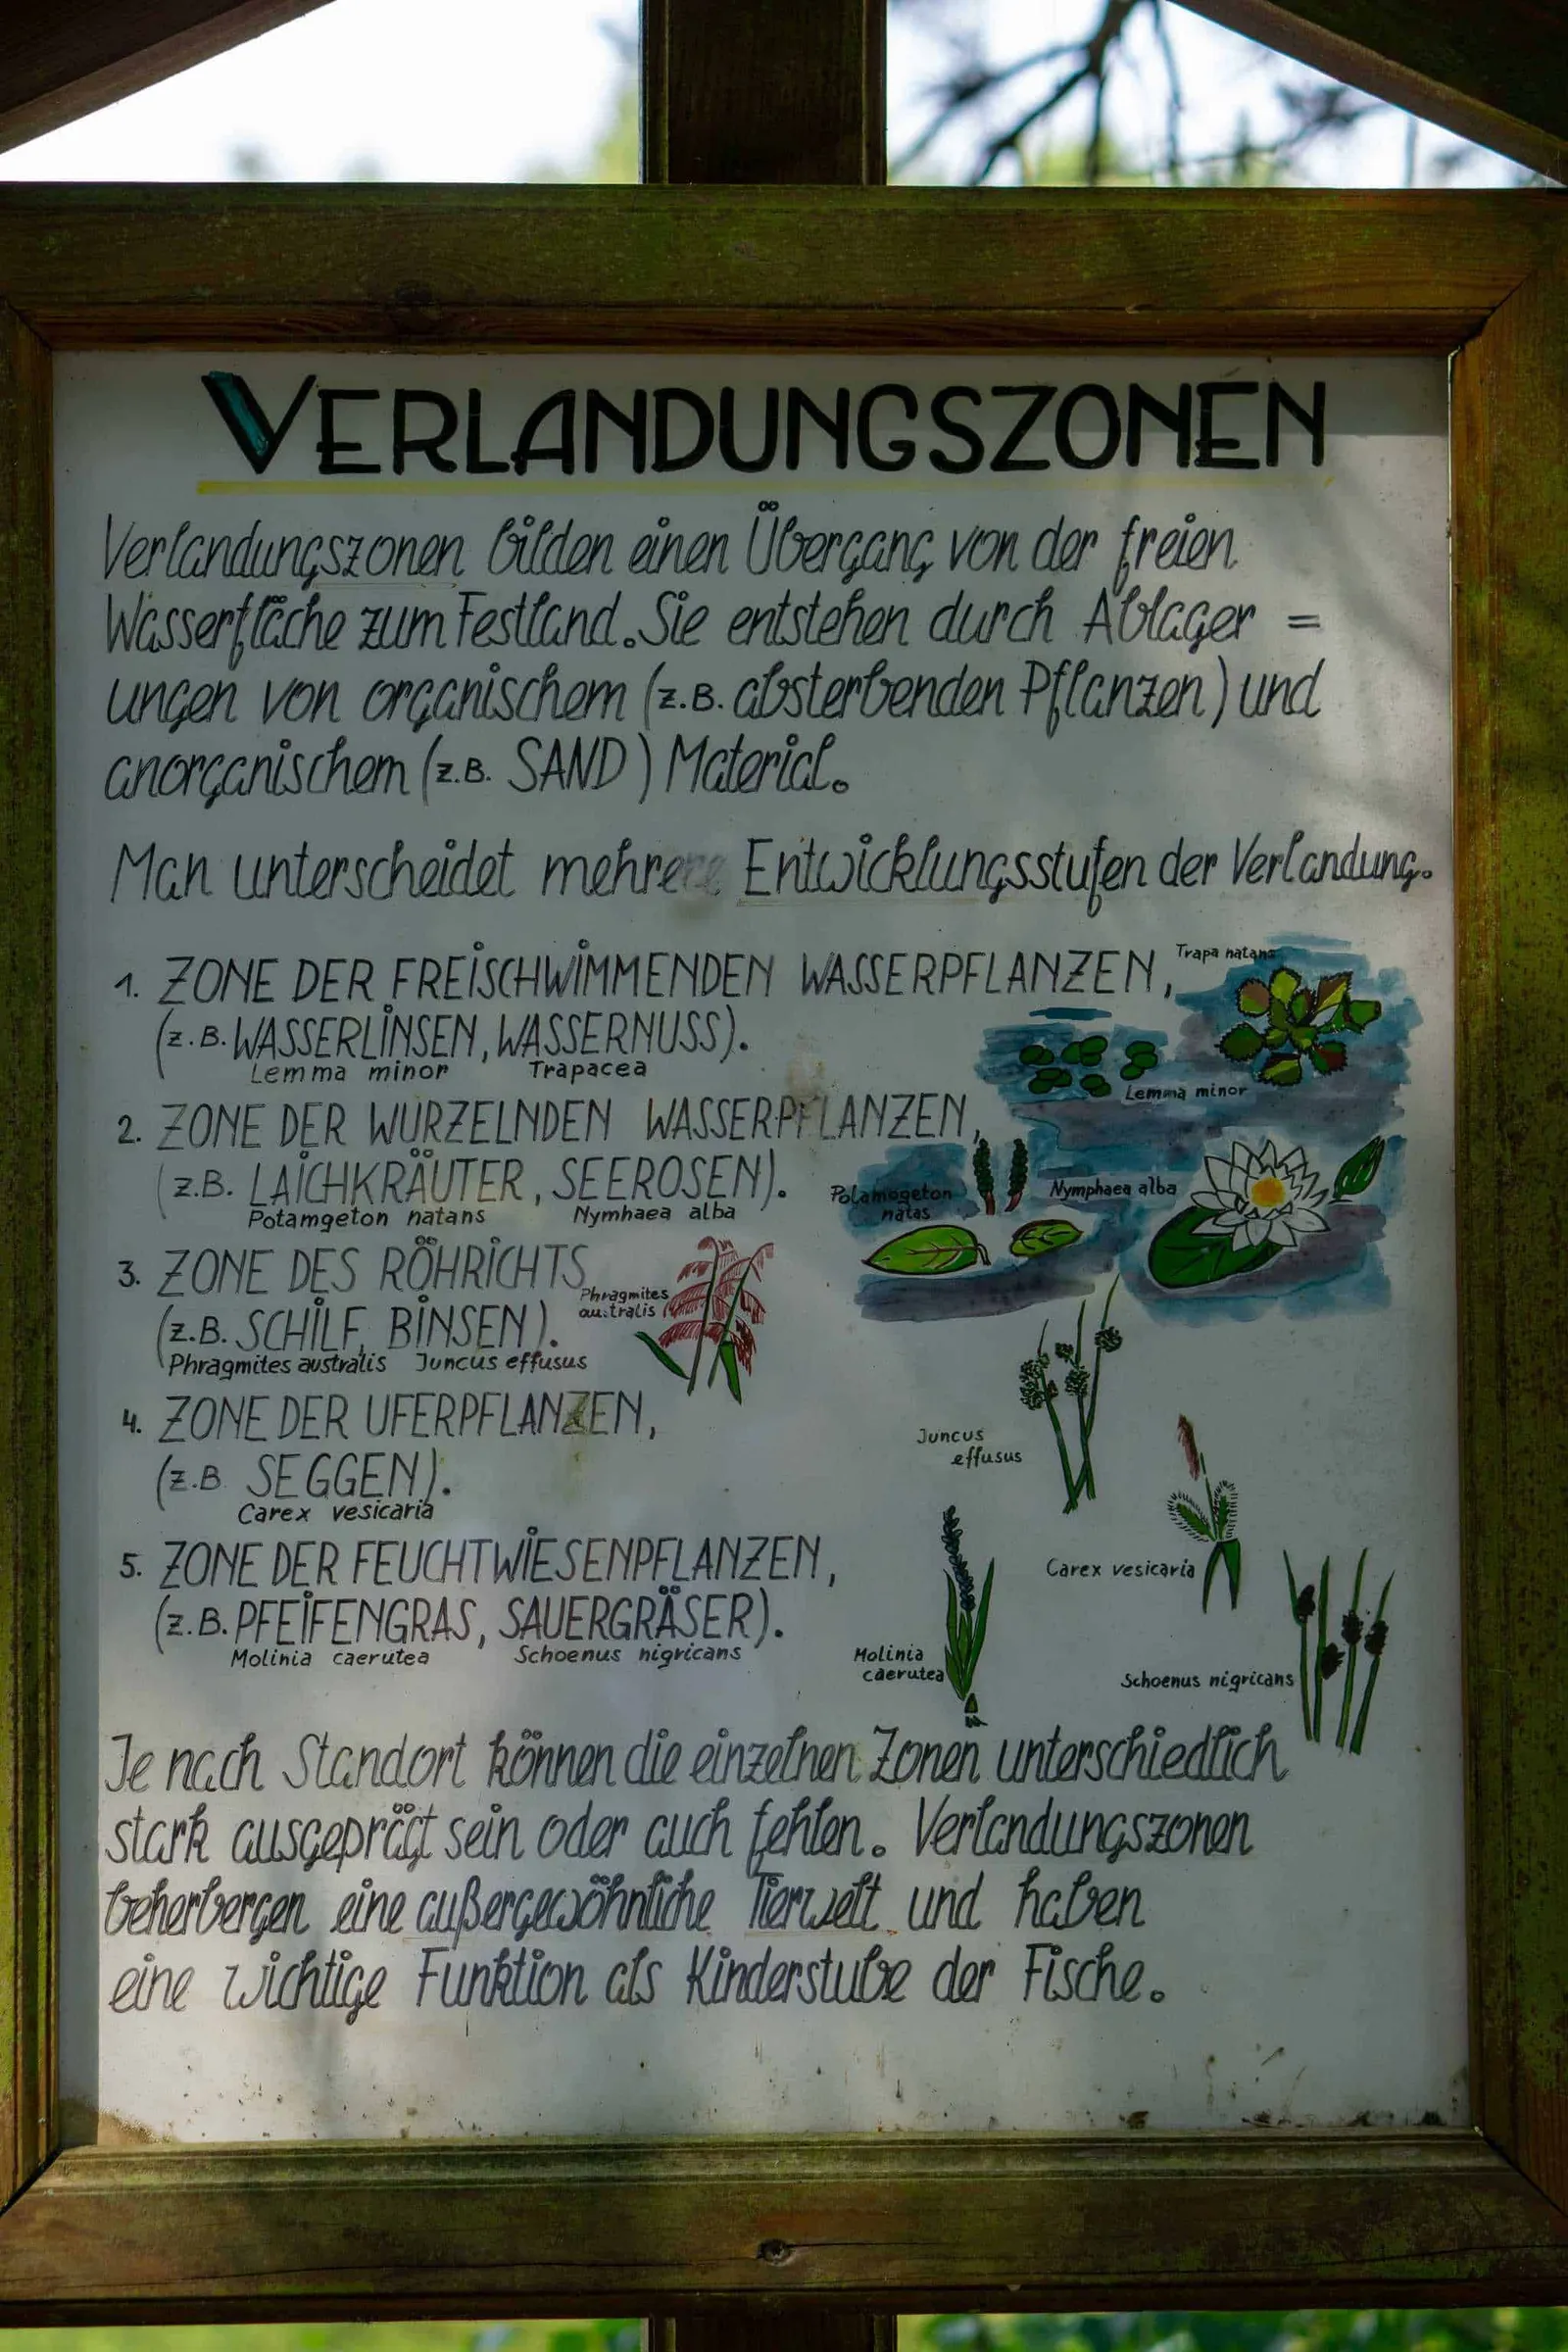 VERLANDUNGSZONEN
Verlandungszonen bilden einen Übergang von der freien
Wasserfläche zum Festland. Sie entstehen durch Ablager =
ungen von organischem (z.B. absterbenden Pflanzen) und
anorganischem (z.B. SAND) Material.
Man unterscheidet mehrere Entwicklungsstufen der Verlandung.
1. ZONE DER FREISCHWIMMENDEN WASSERPFLANZEN,
(z.B. WASSERLINSEN, WASSERNUSS).
Lemma minor Trapacea
Trapa natans
Lemma minor
2. ZONE DER WURZELNDEN WASSERPFLANZEN,
(z.B. LAICHKRÄUTER, SEEROSEN).
Potamgeton natans Nymhaea alba
Potamogeton
natas
Nymphaea alba
3. ZONE DES RÖHRICHTS
(z.B. SCHILF, BINSEN).
Phragmites australis Juncus effusus
Phragmites
australis
Juncus
effusus
4. ZONE DER UFERPFLANZEN,
(z.B SEGGEN).
Carex vesicaria
Carex vesicaria
5. ZONE DER FEUCHTWIESENPFLANZEN,
(z.B. PFEIFENGRAS, SAUERGRÄSER).
Molinia caerutea Schoenus nigricans
Molinia
caerutea
Schoenus nigricans
Je nach Standort können die einzelnen Zonen unterschiedlich
stark ausgeprägt sein oder auch fehlen. Verlandungszonen
beherbergen eine außergewöhnliche Tierwelt und haben
eine wichtige Funktion als Kinderstube der Fische.